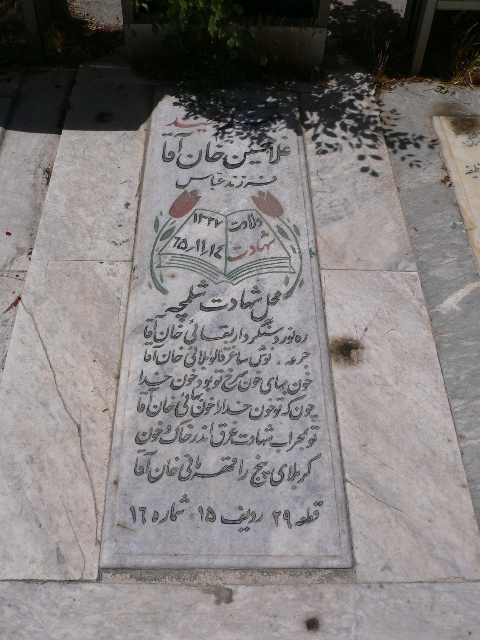 شهید
غلامحسین خان آقا
فرزند عباس
ولادت ۱۳۳۷
شهادت ۶۵/۱۱/۱۴
محل شهادت شلمچه
ره نورد سنگر دار بقائی خان آقا
جرعه نوش ساغر قالو بلائی خان آقا
خون بهای خون سرخ تو بود خون خدا
چون که تو خون خدا را خون بهائی خان آقا
تو بمحراب شهادت غرق اندر خاک و خون
کربلای پنج را قهرمانی خان آقا
قطعه ۲۹ ردیف ۱۵ شماره ۱۶